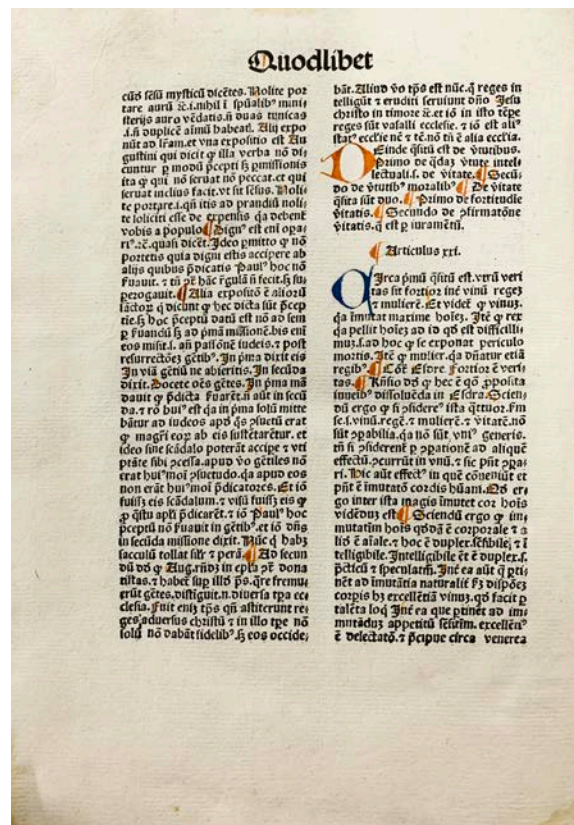 Quodlibet
cūdȝ sēsū mysticū dicētes. Nolite por
tare aurū ⁊c̄.i.nihil ī spūalibꝰ mini
sterijs auro vēdatis. n̄ duas tunicas
.i. n̄ duplicē aīmū habeatꝭ. Alij expo
nūt ad lr̄am. et vna expositio est Au
gustini qui dicit ꝙ illa verba nō di
cuntur ꝑ modū p̄cepti sȝ ꝑmissionis
ita ꝙ qui nō seruat nō peccat. et qui
seruat melius facit. vt sit sēsus. Noli
te portare .i. qn̄ itis ad prandiū noli
te soliciti esse de expensis qa debent̉
vobis a populo ¶ Dignꝰ est eni opa
riꝰ. ⁊c̄. quasi dicēt. Ideo ꝑmitto ꝙ nō
portetis quia digni estis accipere ab
alijs quibus p̄dicatis Paulꝰ hoc nō
ẜuauit. ⁊ tn̄ ꝑ̄ hāc r̄gulā n̄ fecit. sȝ su
perogauit. ¶ Alia expositō ē aliorū
sāctoꝝ q dicunt ꝙ hec dicta sūt p̄cep
tie. sȝ hoc p̄ceptū datū est nō ad sem
ꝑ ẜuandū sȝ ad pͥmā missionē. bis enī
eos misit. s. an̄ passionē iudeis. ⁊ post
resurrectōeȝ gētibꝰ. In pͥma dixit eis
In viā gētiū ne abieritis. In secūda
dixit. Docete oēs gētes. In pͥma mā
dauit ꝙ p̄dicta ẜuarēt. n̄ aūt in secū
da. ⁊ rō huiꝰ est qa in pͥma solū mitte
bātur ad iudeos apd q̄s ꝯsuetū erat
ꝙ magr̄i eoꝝ ab eis sustētarētur. et
ideo sine scādalo poterāt accipe ⁊ vti
ptāte sibi ꝯcessa. apud vō gētiles nō
erat huiꝰmoi ꝯsuetudo. qa apud eos
non erāt huiꝰmoi p̄dicatores. Et iō
fuisȝ eis scādalum. ⁊ visū fuisȝ eis ꝙ
ꝓ qͣstu apli p̄dicarēt. ⁊ iō Paulꝰ hoc
p̄ceptū nō ẜuauit in gētibꝰ. et iō dn̄s
in secūda missione dixit. Nūc q̄ habȝ
sacculū tollat silr̄ ⁊ perā. ¶ Ad secun
dū dō ꝙ Aug. rn̄dȝ in epl̄a ꝯᷓ dona
tistas. ⁊ habet̉ sup illō ps̄. qre fremu
erūt gētes. distiguit. n. diuersa tpa ec
clesia. Fuit eniȝ tps̄ qn̄ astiterunt re
ges aduersus christū ⁊ in illo tpe nō
solū nō dabāt fidelibꝰ. sȝ eos occide
bāt. Aliud vō tp̄s est nūc. q reges in
telligūt ⁊ eruditi seruiunt dn̄o Jesu
christo in timore ⁊c̄. et iō in isto tēpe
reges sūt vasalli ecclesie. ⁊ iō est aliꝰ
statꝰ ecclie nc̄ ⁊ tē. nō tn̄ ē alia eccīia.
Deinde q̄situ est de ꝟtutibus.
Primo de q̄daȝ ꝟtute intel
lectuali. s. de ꝟitate. ¶ Secū
do de ꝟtutibꝰ moralibꝰ ¶ De ꝟitate
q̄sita sūt duo. ¶ Primo de fortitudīe
ꝟitatis. ¶ Secundo de ꝯfirmatōne
ꝟitatis. q est ꝑ iuramētū.
¶ Articulus xxi.
Circa pͥmū q̄sitū est. vtrū veri
tas sit fortior int̄ vinū regeȝ
⁊ mulierē. Et videt̉ ꝙ vinuȝ.
qa īmutat maxime hoīeȝ. Itē ꝙ rex
qa pellit hoīeȝ ad id qd̄ est difficilli
muȝ. s. ad hoc ꝙ se exponat periculo
mortis. Itē ꝙ mulier. qa dn̄atur etiā
regibꝰ. ¶ Cōt̄ Esdre. Fortior ē veri
tas. ¶ Rn̄sio dd̄ ꝙ hec ē qō ꝓposita
iuuēibꝰ dissoluēda in Esdra. Scien
dū ergo ꝙ si ꝯsiderẻ ista q̄ttuor. ẜm
se. s. vinū. regē. ⁊ mulierē. ⁊ ꝟitatē. nō
sūt ꝯꝑabilia. qa nō sūt vniꝰ generis.
tn̄ si ꝯsiderent̉ ꝑ ꝯparationē ad aliquē
effectū. ꝯcurrūt in vnū. ⁊ sic pn̄t ꝯꝑa
ri. Hic aūt effectꝰ in quē cōueniūt et
pn̄t ē imutatō cordis hūani. Qd̄ er
go inter ista magis īmutet cor hoīs
vidēduȝ est. ¶ Sciendū ergo ꝙ im
mutatiū hoīs qd̄dā ē corporale ⁊ a
liō ē aīale. ⁊ hoc ē duplex. sēsibile. ⁊ ī
telligibile. Intelligibile ēt ē duplex. s.
pͣcticū ⁊ speculatiū. Int̄ ea aūt q ꝑti
nēt ad imutātia naturalit̄ ẜȝ dispōeȝ
corpis hȝ excellētiā vinuȝ. qd̄ facit ꝑ
talēta loqͥ Int̄ ea que ꝑtinēt ad im
mutāduȝ appetitū sēsitiū. excellētꝰ
ē delectatō. ⁊ p̄cipue circa venerea